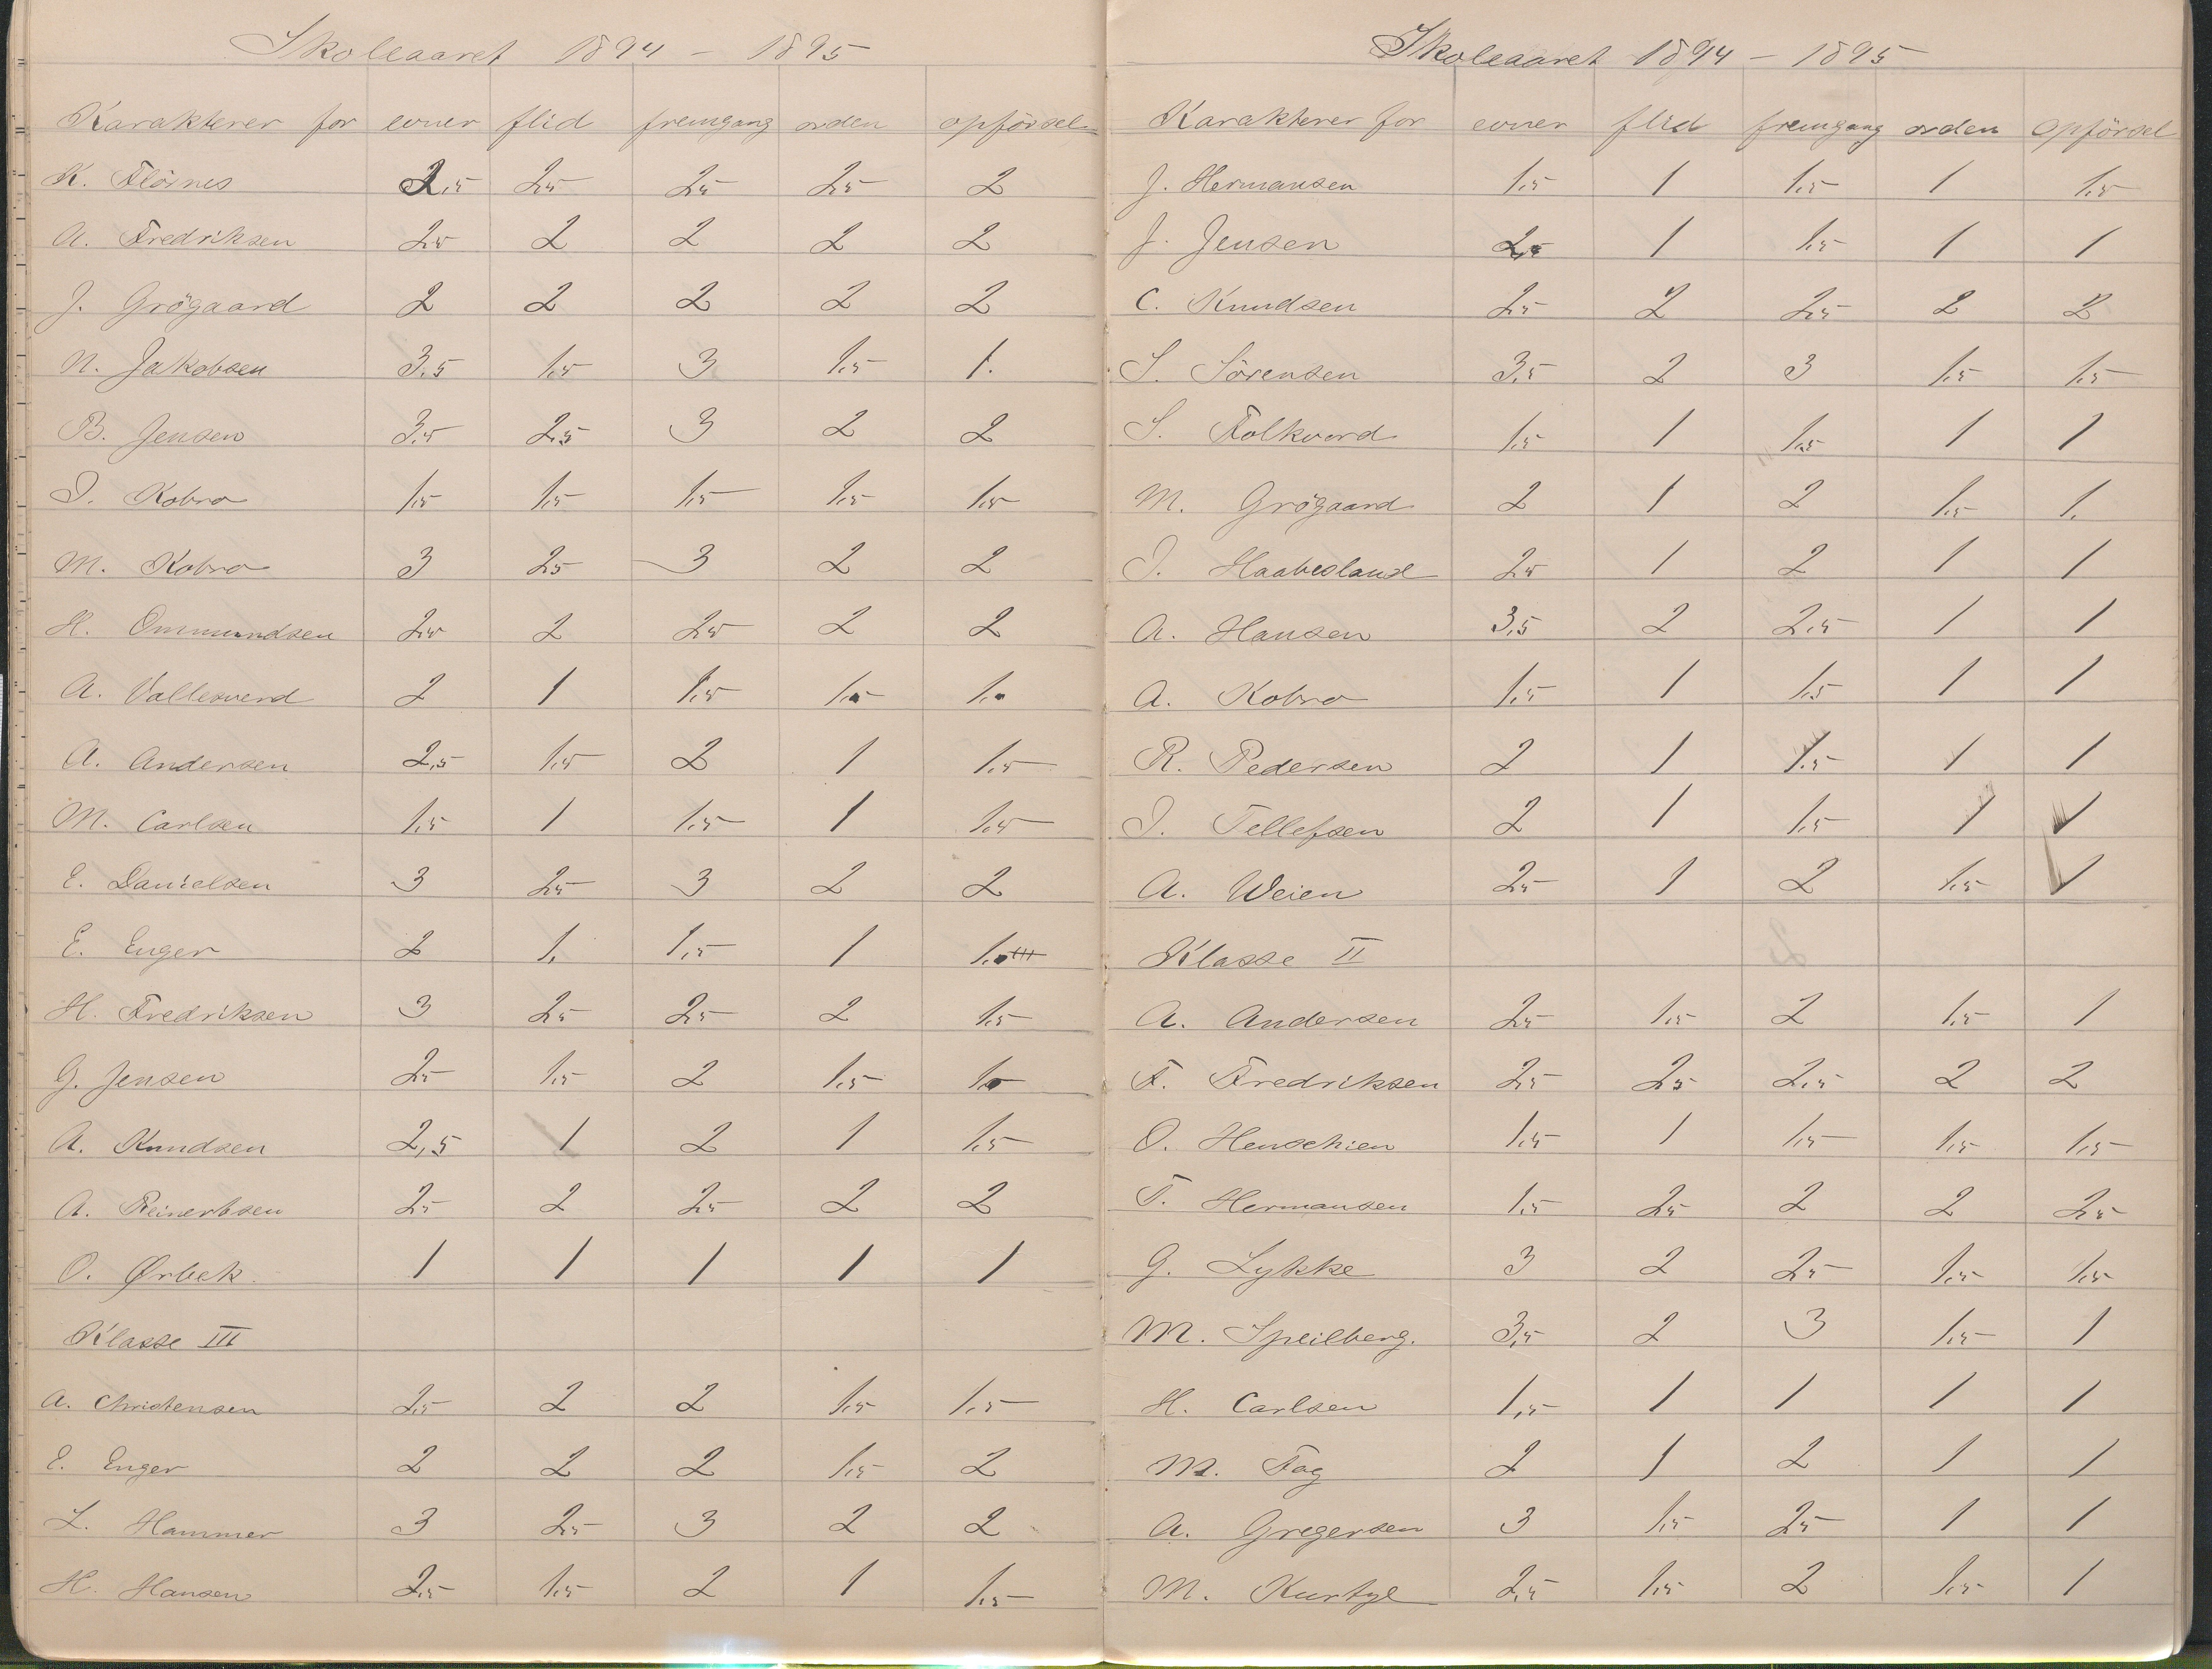 Skoleaaret 1894 - 1895
Karakterer for evner flid fremgang orden opförsel
K. Flöines 2,5 2,5 2,5 2,5 2
A. Fredriksen 2,5 2 2 2 2
J. Grögaard 2 2 2 2 2
N. Jakobsen 3,5 1,5 3 1,5 1.
B. Jensen 3,5 2,5 3 2 2
I. Kobro 1,5 1,5 1,5 1,5 1,5
M. Kobro 3 2,5 3 2 2
H. Ommundsen 2,5 2 2,5 2 2
A. Vallesverd 2 1 1,5 1,5 1.
A. Andersen 2,5 1,5 2 1 1,5
M. Carlsen 1,5 1 1,5 1 1,5
E. Danielsen 3 2,5 3 2 2
E. Enger 2 1. 1,5 1 1.
H. Fredriksen 3 2,5 2,5 2 1,5
G. Jensen 2,5 1,5 2 1,5 1,5
A. Knudsen 2,5 1 2 1 1,5
A. Reinertsen 2,5 2 2,5 2 2
O. Ørbek. 1 1 1 1 1
Klasse III
A. Christensen 2,5 2 2 1,5 1,5
E. Enger 2 2 2 1,5 2
L. Hammer 3 2,5 3 2 2
H. Hansen 2,5 1,5 2 1 1,5
Skoleaaret 1894 - 1895
Karakterer for evner flid fremgang orden opförsel
J. Hermansen 1,5 1 1,5 1 1,5
J. Jensen 2,5 1 1,5 1 1
C. Knudsen 2,5 2 2,5 2 2
S. Sörensen 3,5 2 3 1,5 1,5
S. Folkvord 1,5 1 1,5 1 1
M. Grögaard 2 1 2 1,5 1.
I. Haabesland 2,5 1 2 1 1
A. Hansen 3,5 2 2,5 1 1
A. Kobro 1,5 1 1,5 1 1
R. Pedersen 2 1 1,5 1 1
I. Tellefsen 2 1 1,5 1 1
A. Weien 2,5 1 2 1,5 1
Klasse II
A. Andersen 2,5 1,5 2 1,5 1
F. Fredriksen 2,5 2,5 2,5 2 2
O. Henschien 1,5 1 1,5 1,5 1,5
T. Hermansen 1,5 2,5 2 2 2,5
G. Lykke 3 2 2,5 1,5 1,5
M. Speilberg. 3,5 2 3 1,5 1
H. Carlsen 1,5 1 1 1 1
M. Fog 2 1 2 1 1
A. Gregersen 3 1,5 2,5 1 1
M. 2,5 1,5 2 1,5 1